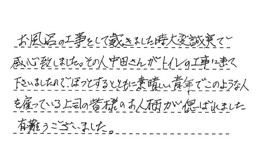 お風呂の工事をして戴きました時大変誠実で
感心致しました。その人中田さんがトイレの工事に来て
下さいましたのでほっとするとともに素晴しい青年でこのような人
を雇っている上司の皆様のお人柄が偲ばれました
有難うございました。